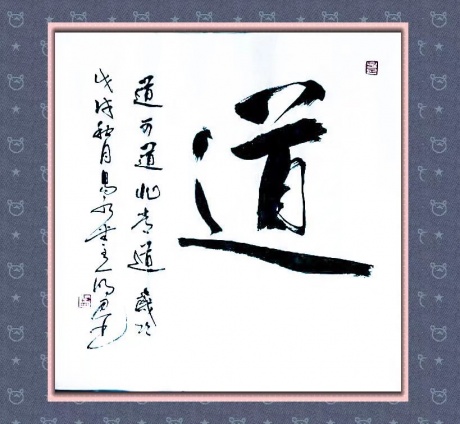 道
道可道非常道 歲次
戊戌秋月